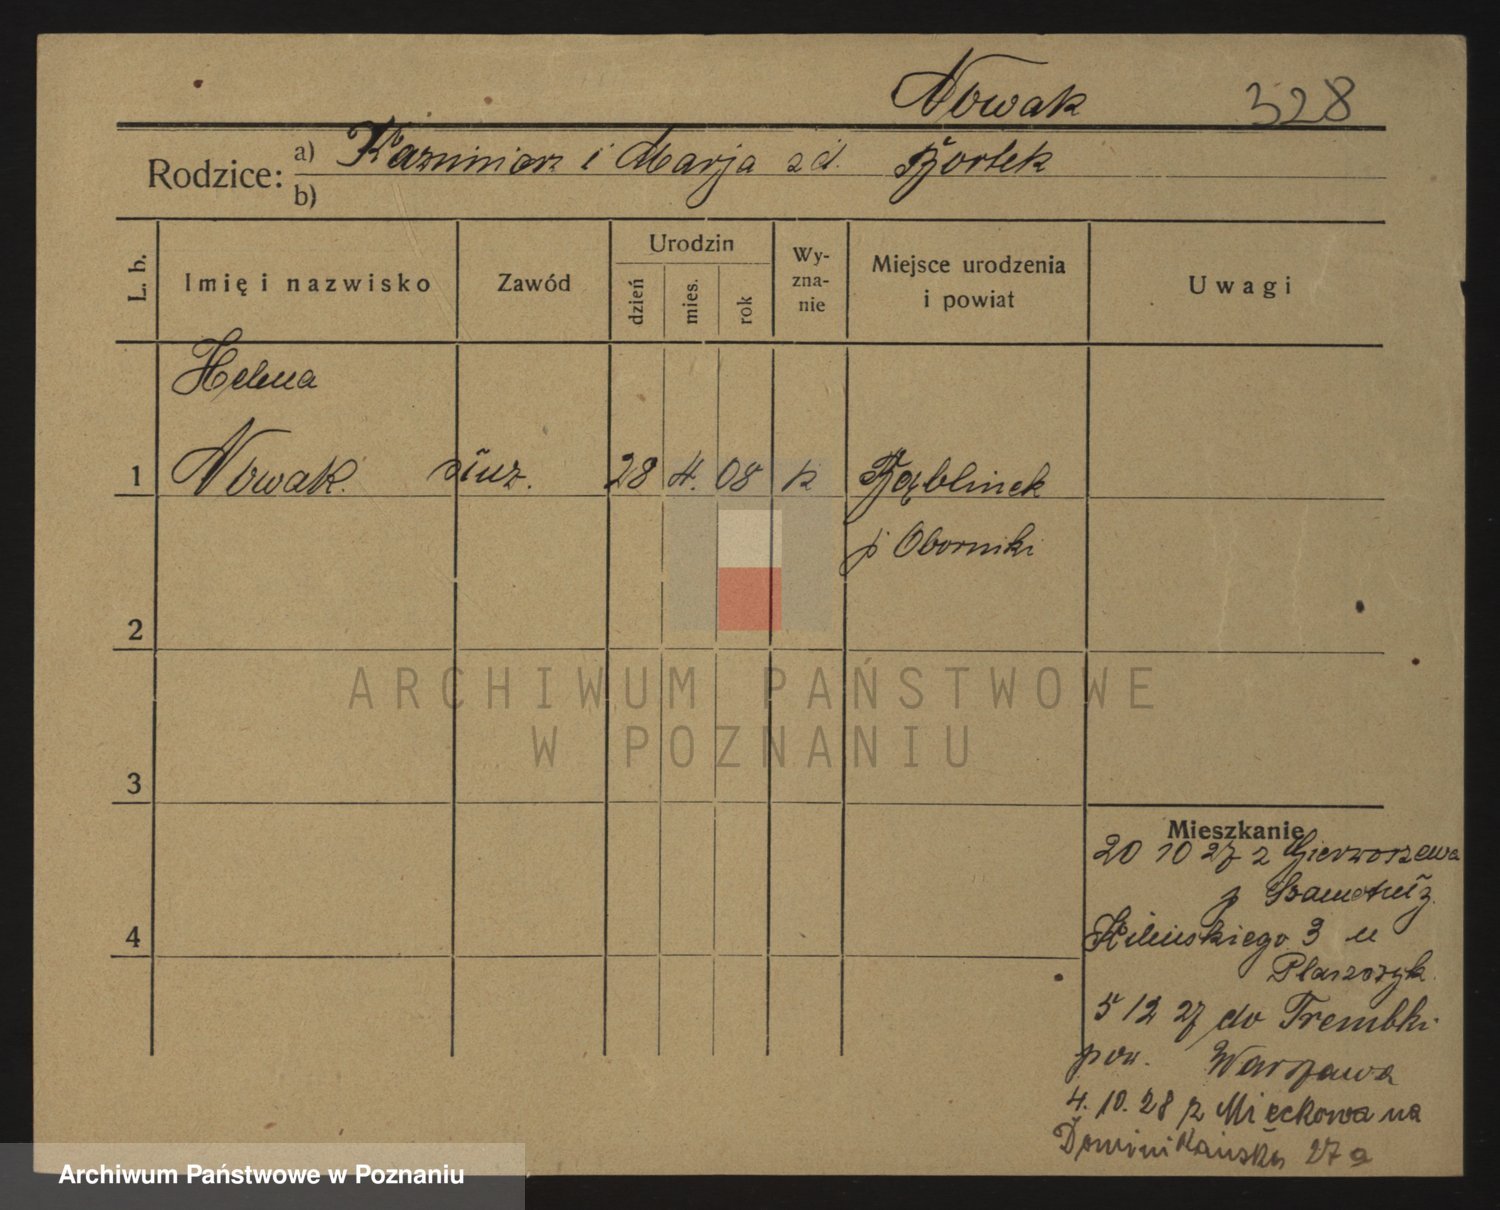 Nowak 328
Rodzice: a) Kazimierz i Marja zd. Bortek
b)
L. b. Imię i nazwisko Zawód Urodzin dzień mies. rok Wyznanie Miejsce urodzenia i powiat Uwagi
Helena
1 Nowak. służ. 28 4. 08 k Bąblinek
p Oborniki
2
ARCHIWUM PAŃSTWOWE
W POZNANIU
3
Mieszkanie
20 10 27 z
p
Kilińskiego 3 u
5 12 27 do Trembki
pow. Warszawa
4. 10. 28 z Mięckowa na
Dominikańską 27a
4
Archiwum Państwowe w Poznaniu